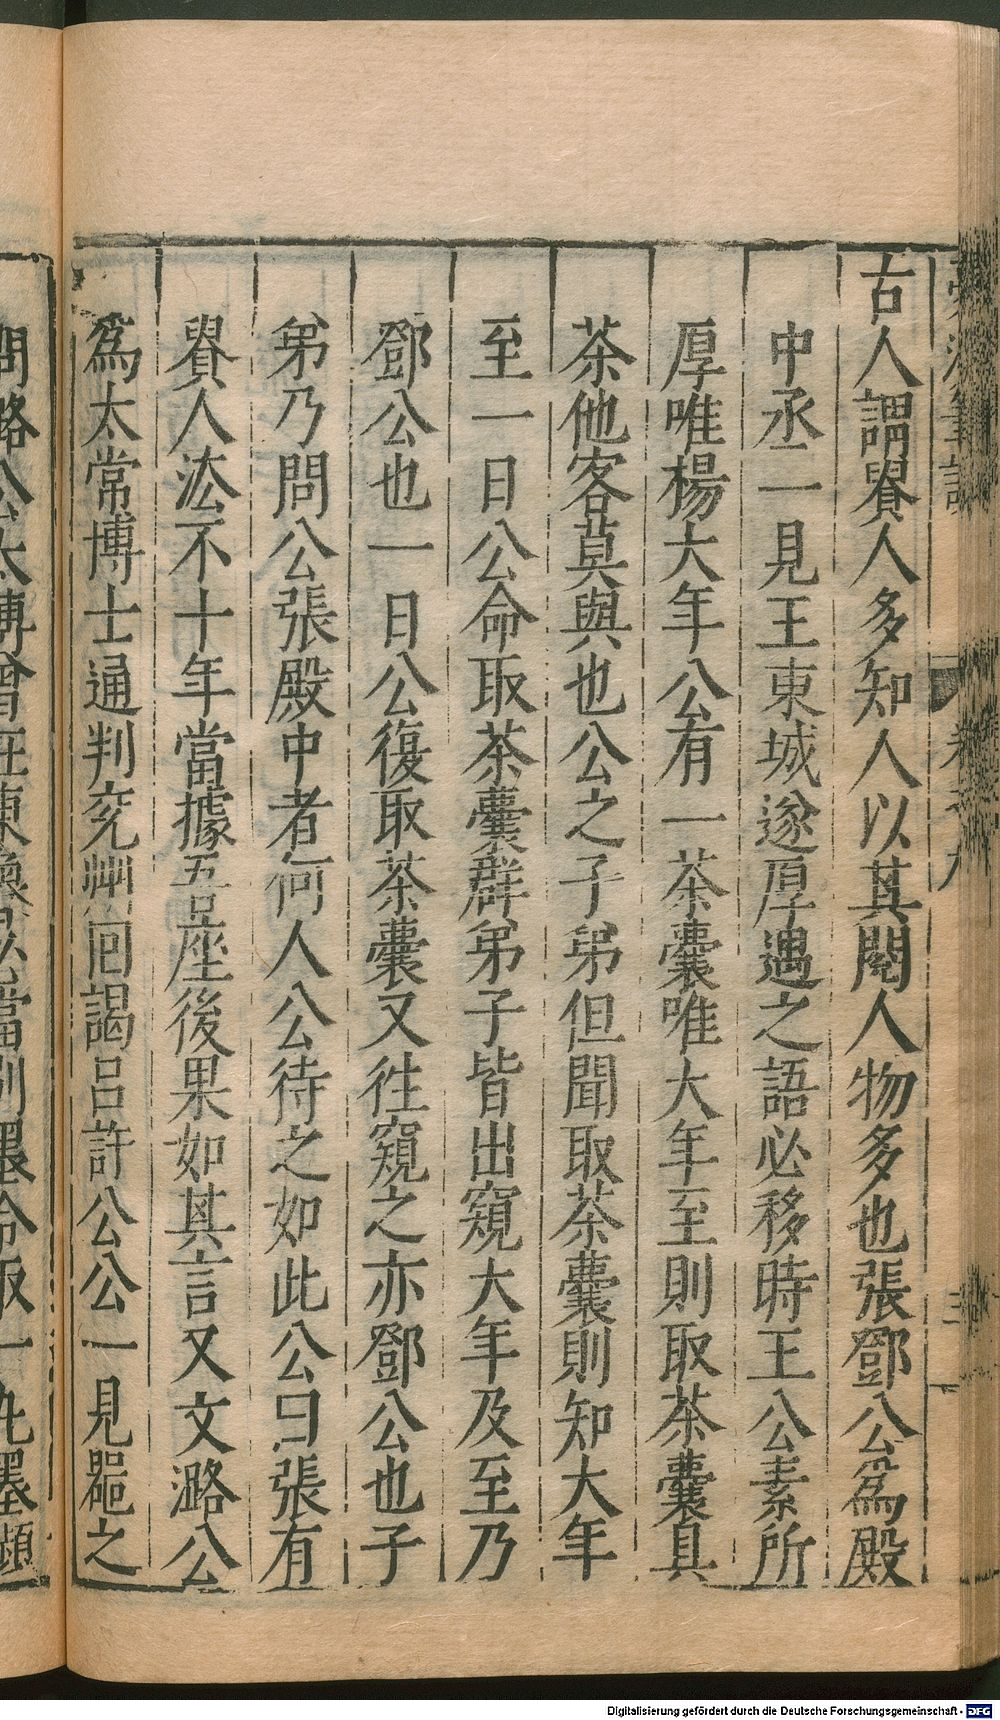 古人謂貴人多知人以其閱人物多也張鄧公爲殿
中丞一見王東城遂厚遇之語必移時王公素所
厚唯楊大年公有一茶囊唯大年至則取茶囊具
茶他客莫與也公之子弟但聞取茶囊則知大年
至一日公命取茶囊群弟子皆出窺大年及至乃
鄧公也一日公復取茶囊又徃窺之亦鄧公也子
弟乃問公張殿中者何人公待之如此公曰張有
貴人法不十年當據吾座後果如其言又文潞公
爲太常博士通判兖州回謁呂許公公一見器之
問潞公太博曾在東魯必當別墨令取一丸墨瀕
Digitalisierung gefördert durch die Deutsche Forschungsgemeinschaft - DFG